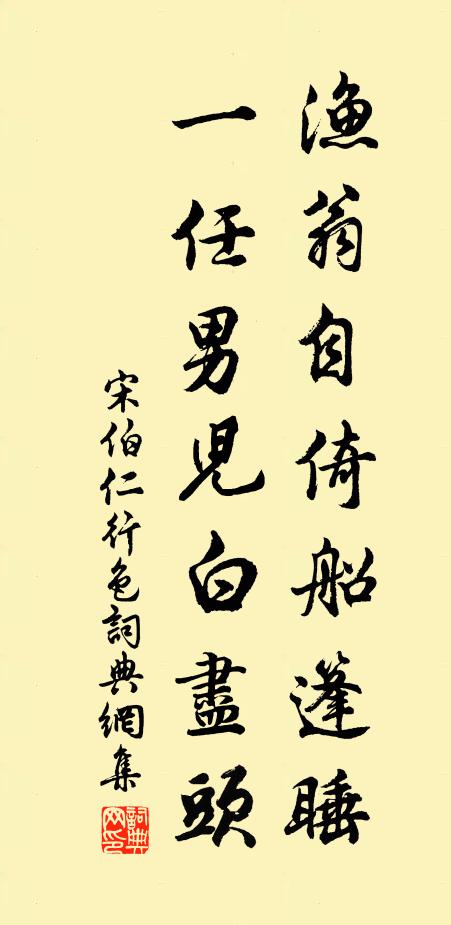 漁翁自倚船蓬睡
一任男兒白盡頭
宋伯仁行色詞典網集
詞典網印